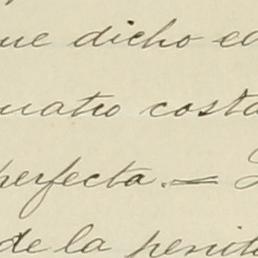 ue dicho e
uatro costa
perfecta. =
de la penit